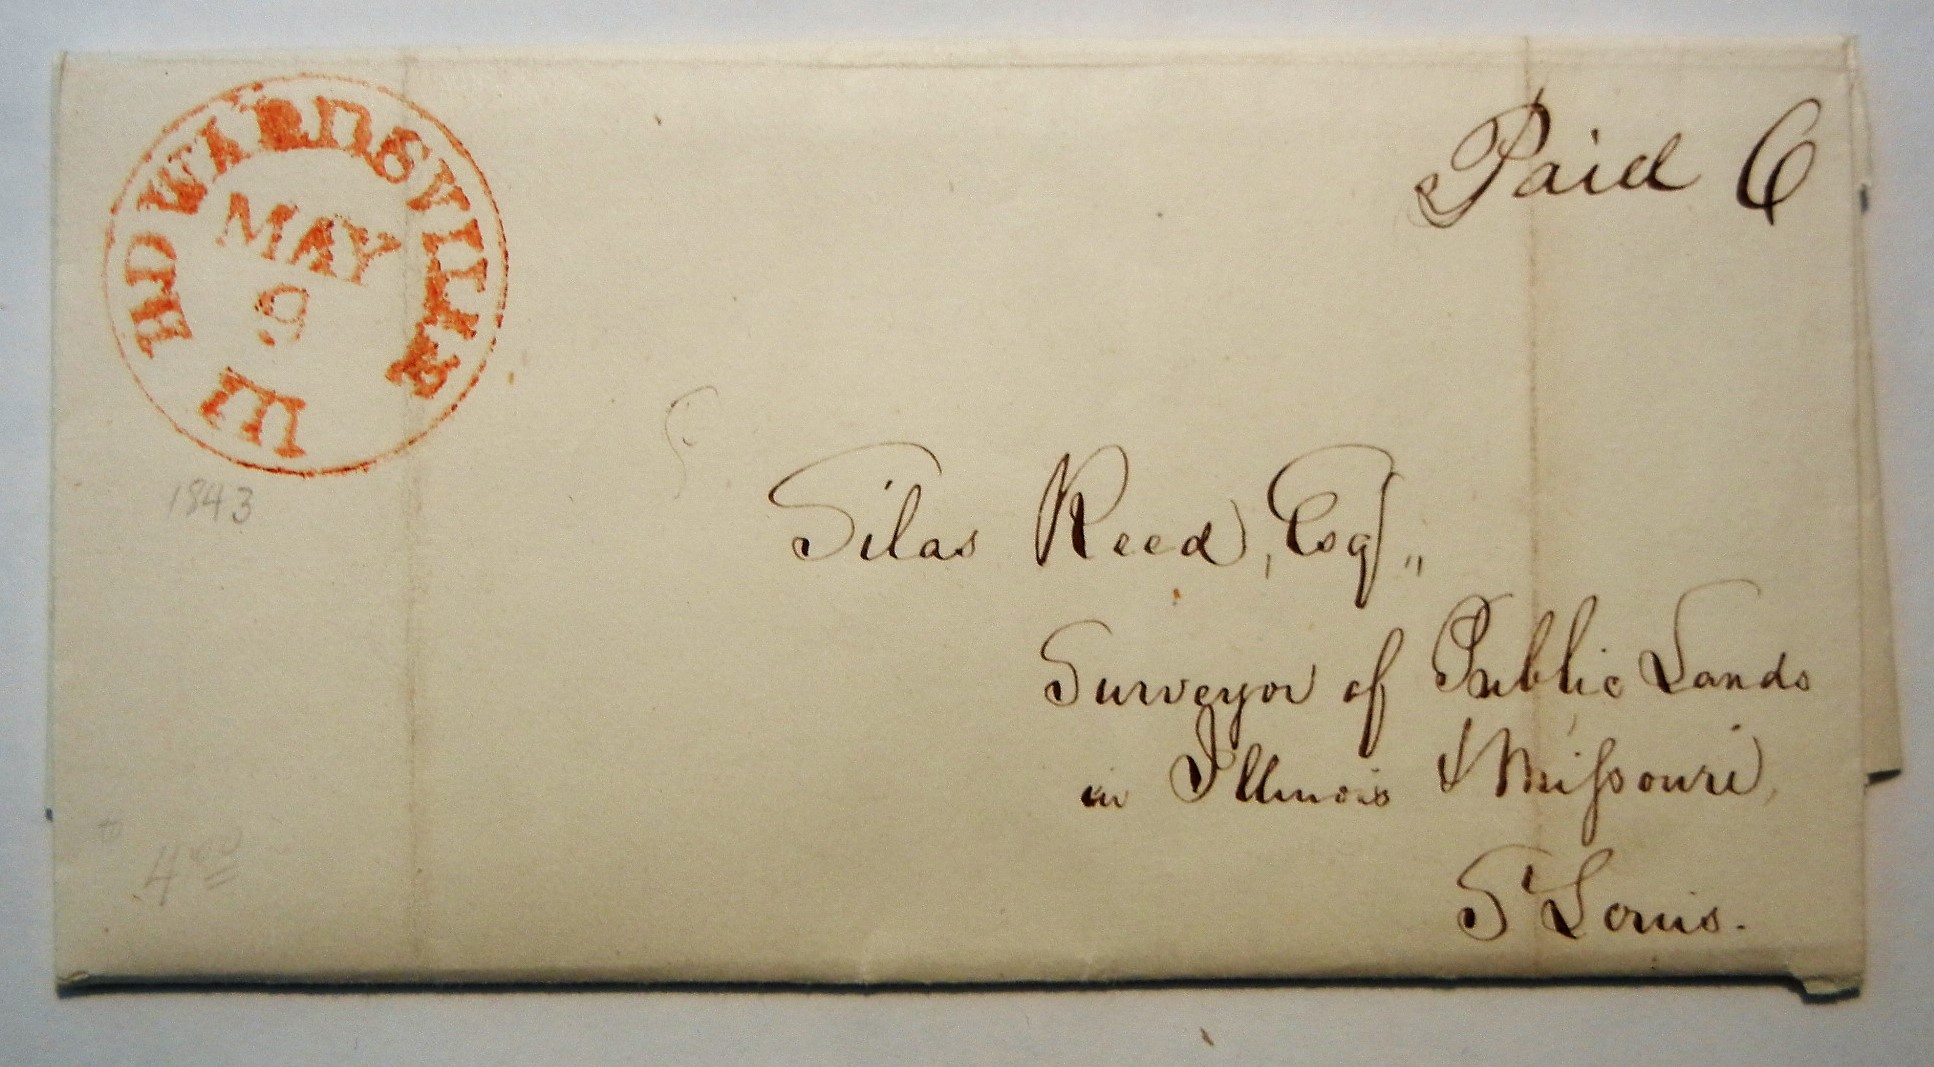 EDWARDSVILLE
MAY
9
Ill
Paid 6
1843
Silas Reed, Esqr„
Surveyor of Public Lands
in Illinois & Missouri,
St Louis.
4.00